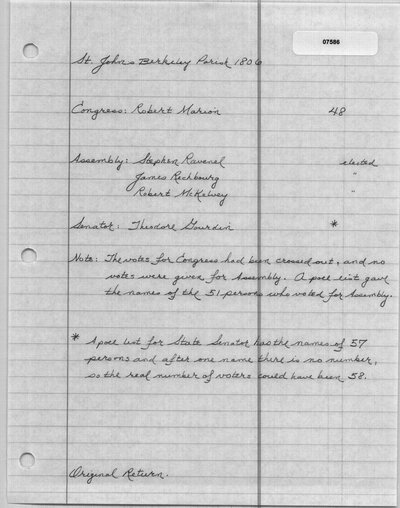 07586
St. Johns Berkeley Parish 1806
Congress: Robert Marion 48
Assembly: Stephen Ravenel elected
James Rechbourg "
Robert McKelvey "
Senator: Theodore Gourdin *
Note: The votes for Congress had been crossed out, and no
votes were given for Assembly. A poll list gave
the names of the 51 persons who voted for Assembly.
* A poll list for State Senator has the names of 57
persons and after one name there is no number,
so the real number of voters could have been 58.
Original Return.